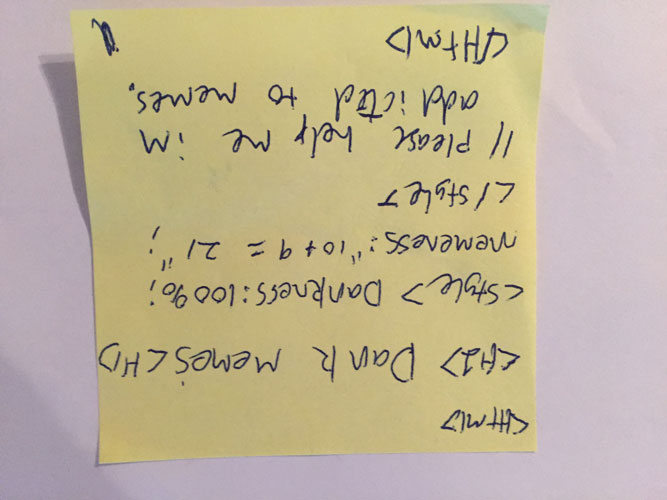 <Html>
<H1> Dank Memes<H1>
<style> Dankness:100%;
memeness: "10+9 = 21";
</style>
// Please help me im
addicted to memes.
</Html>